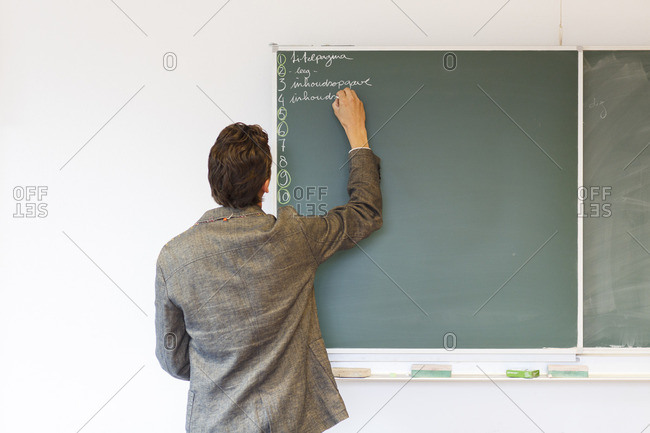 1 titelpagina
2 - leeg -
3 inhoudsopgave
4 inhouds
5
6
7
8
9
10
OFFSET
OFFSET
OFFSET